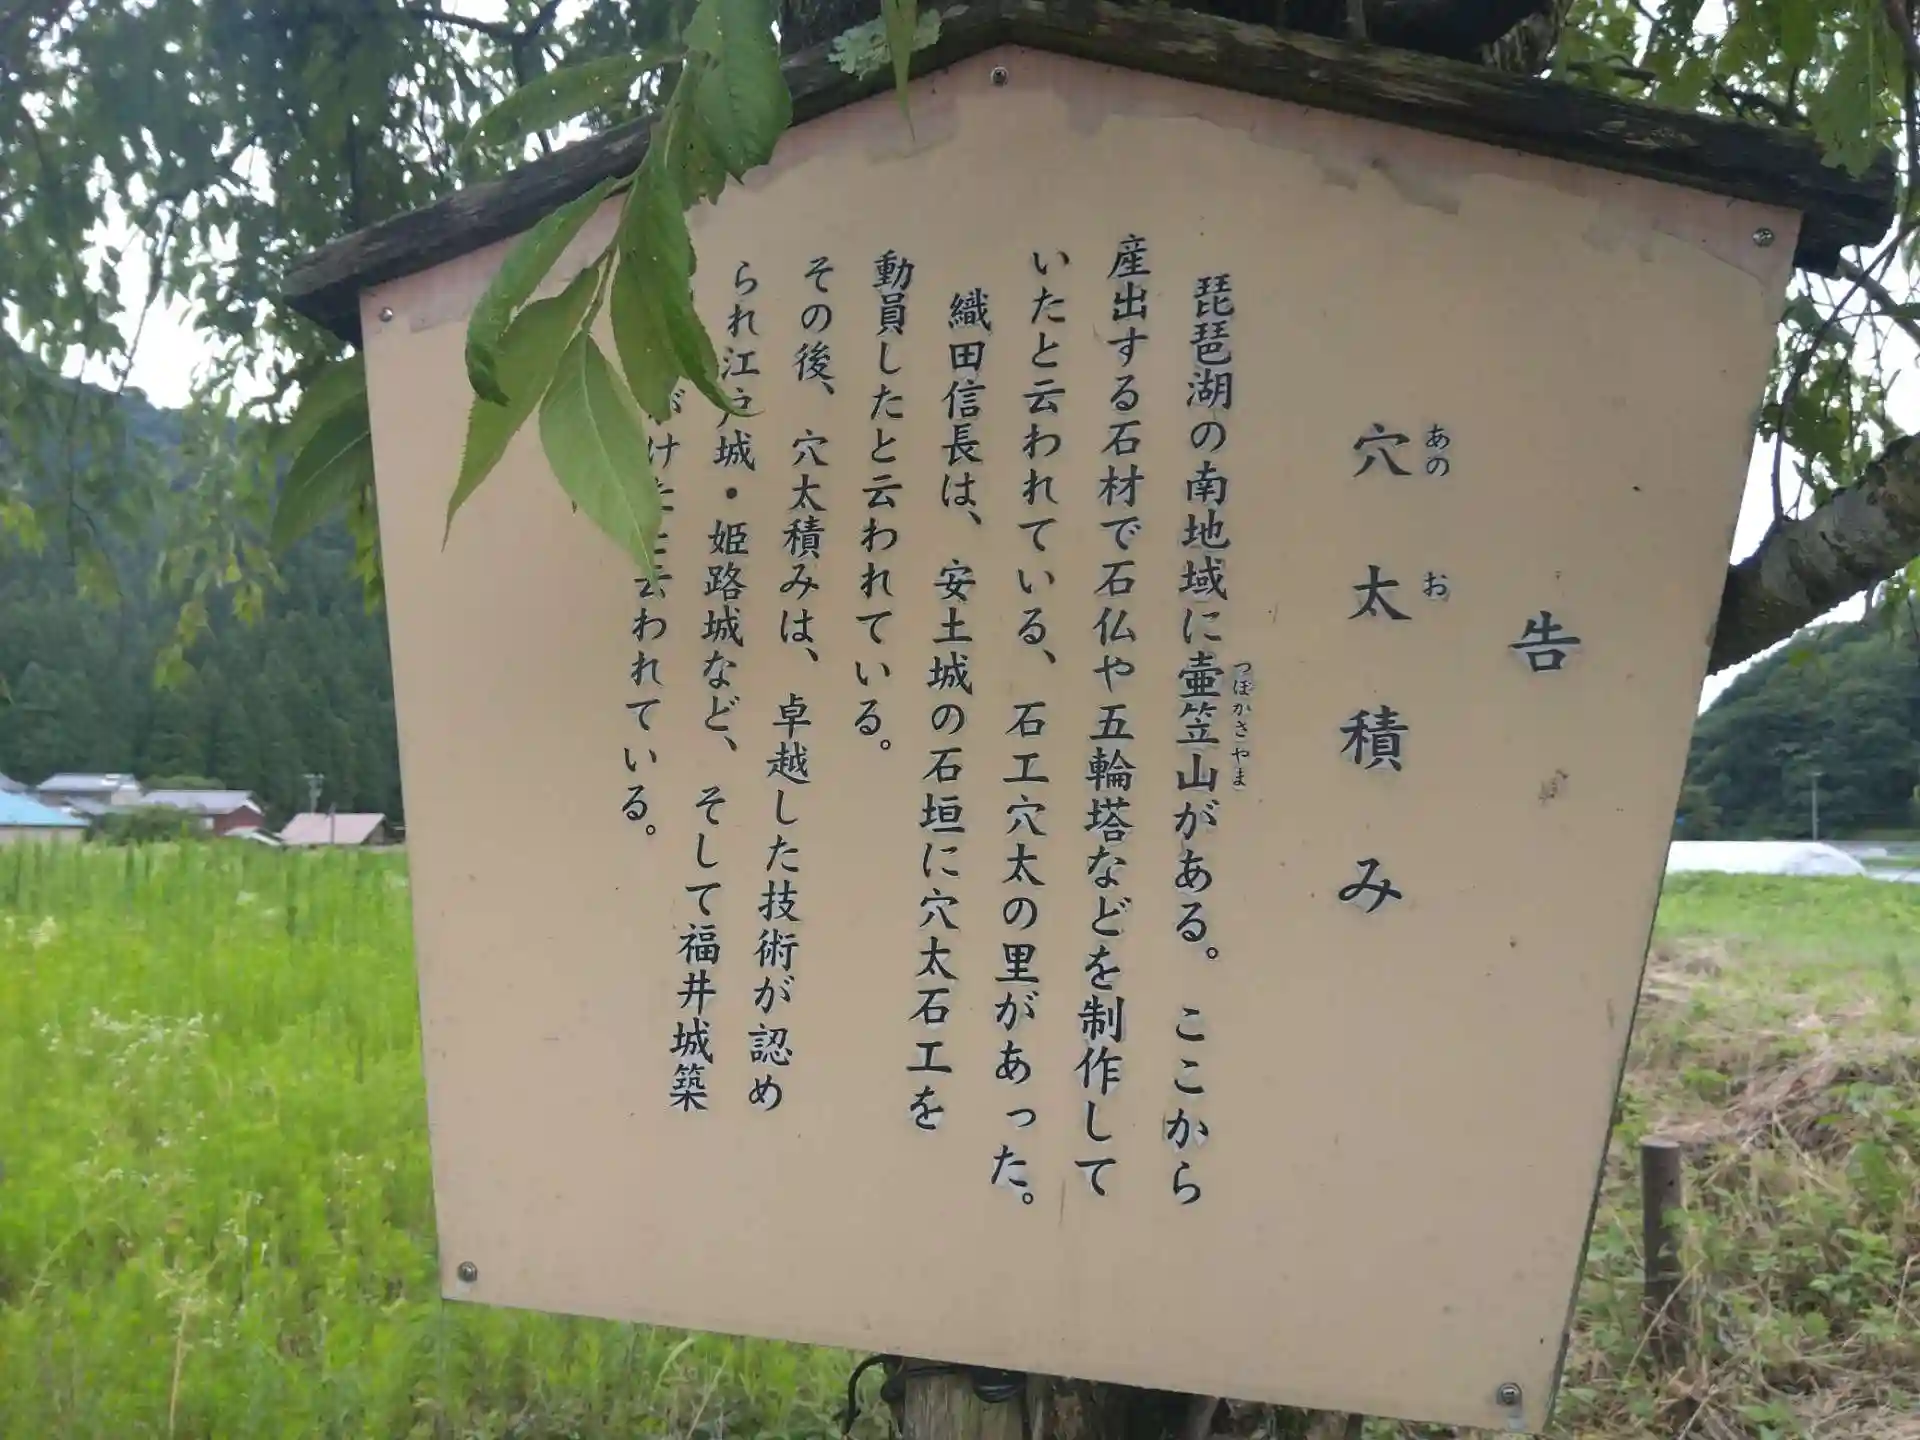 告
穴太積み
あの お
琵琶湖の南地域に壷笠山がある。ここから
つぼかさやま
産出する石材で石仏や五輪塔などを制作して
いたと云われている、石工穴太の里があった。
織田信長は、安土城の石垣に穴太石工を
動員したと云われている。
その後、穴太積みは、卓越した技術が認め
られ江戸城・姫路城など、そして福井城築
がけたと云われている。